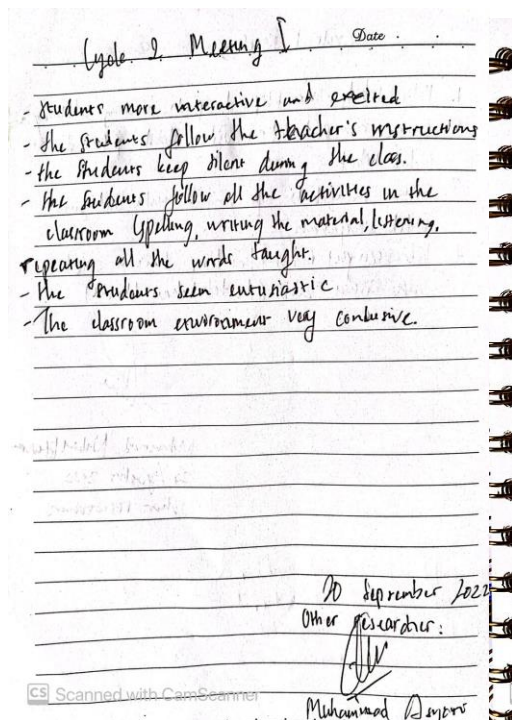 Cycle 2 Meeting I
Date
- Students more interactive and excited
- the students follow the teacher's instructions
- the students keep silent during the class.
- the students follow all the activities in the
classroom (spelling, writing the material, listening,
repeating all the words taught.
- the students seem entusiastic
- The classroom environment very condusive.
20 September 2022
Other researcher:
CS Scanned with CamScanner
Muhammad